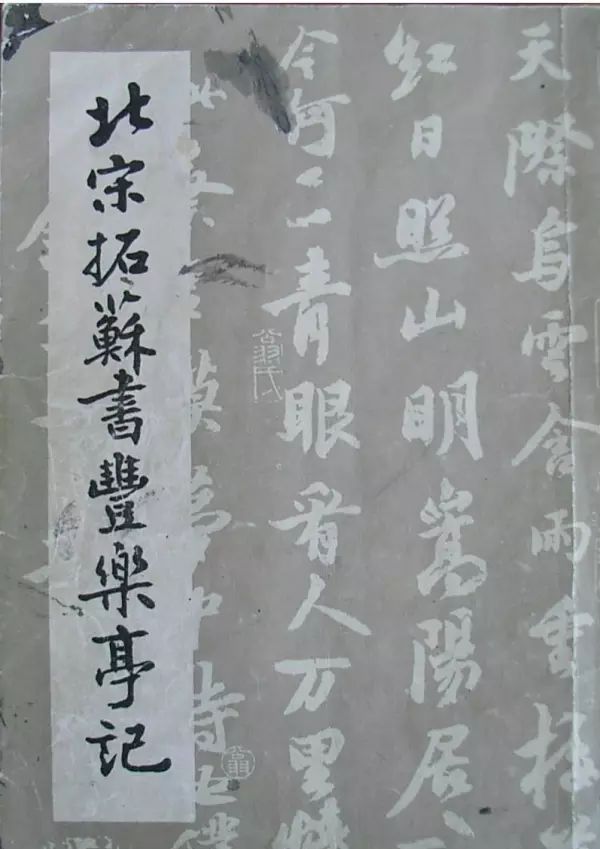 北宋拓蘇書豐樂亭記
天際烏雲含雨重
紅日照山明嵩陽居
今何在青眼看人万里情
翁氏